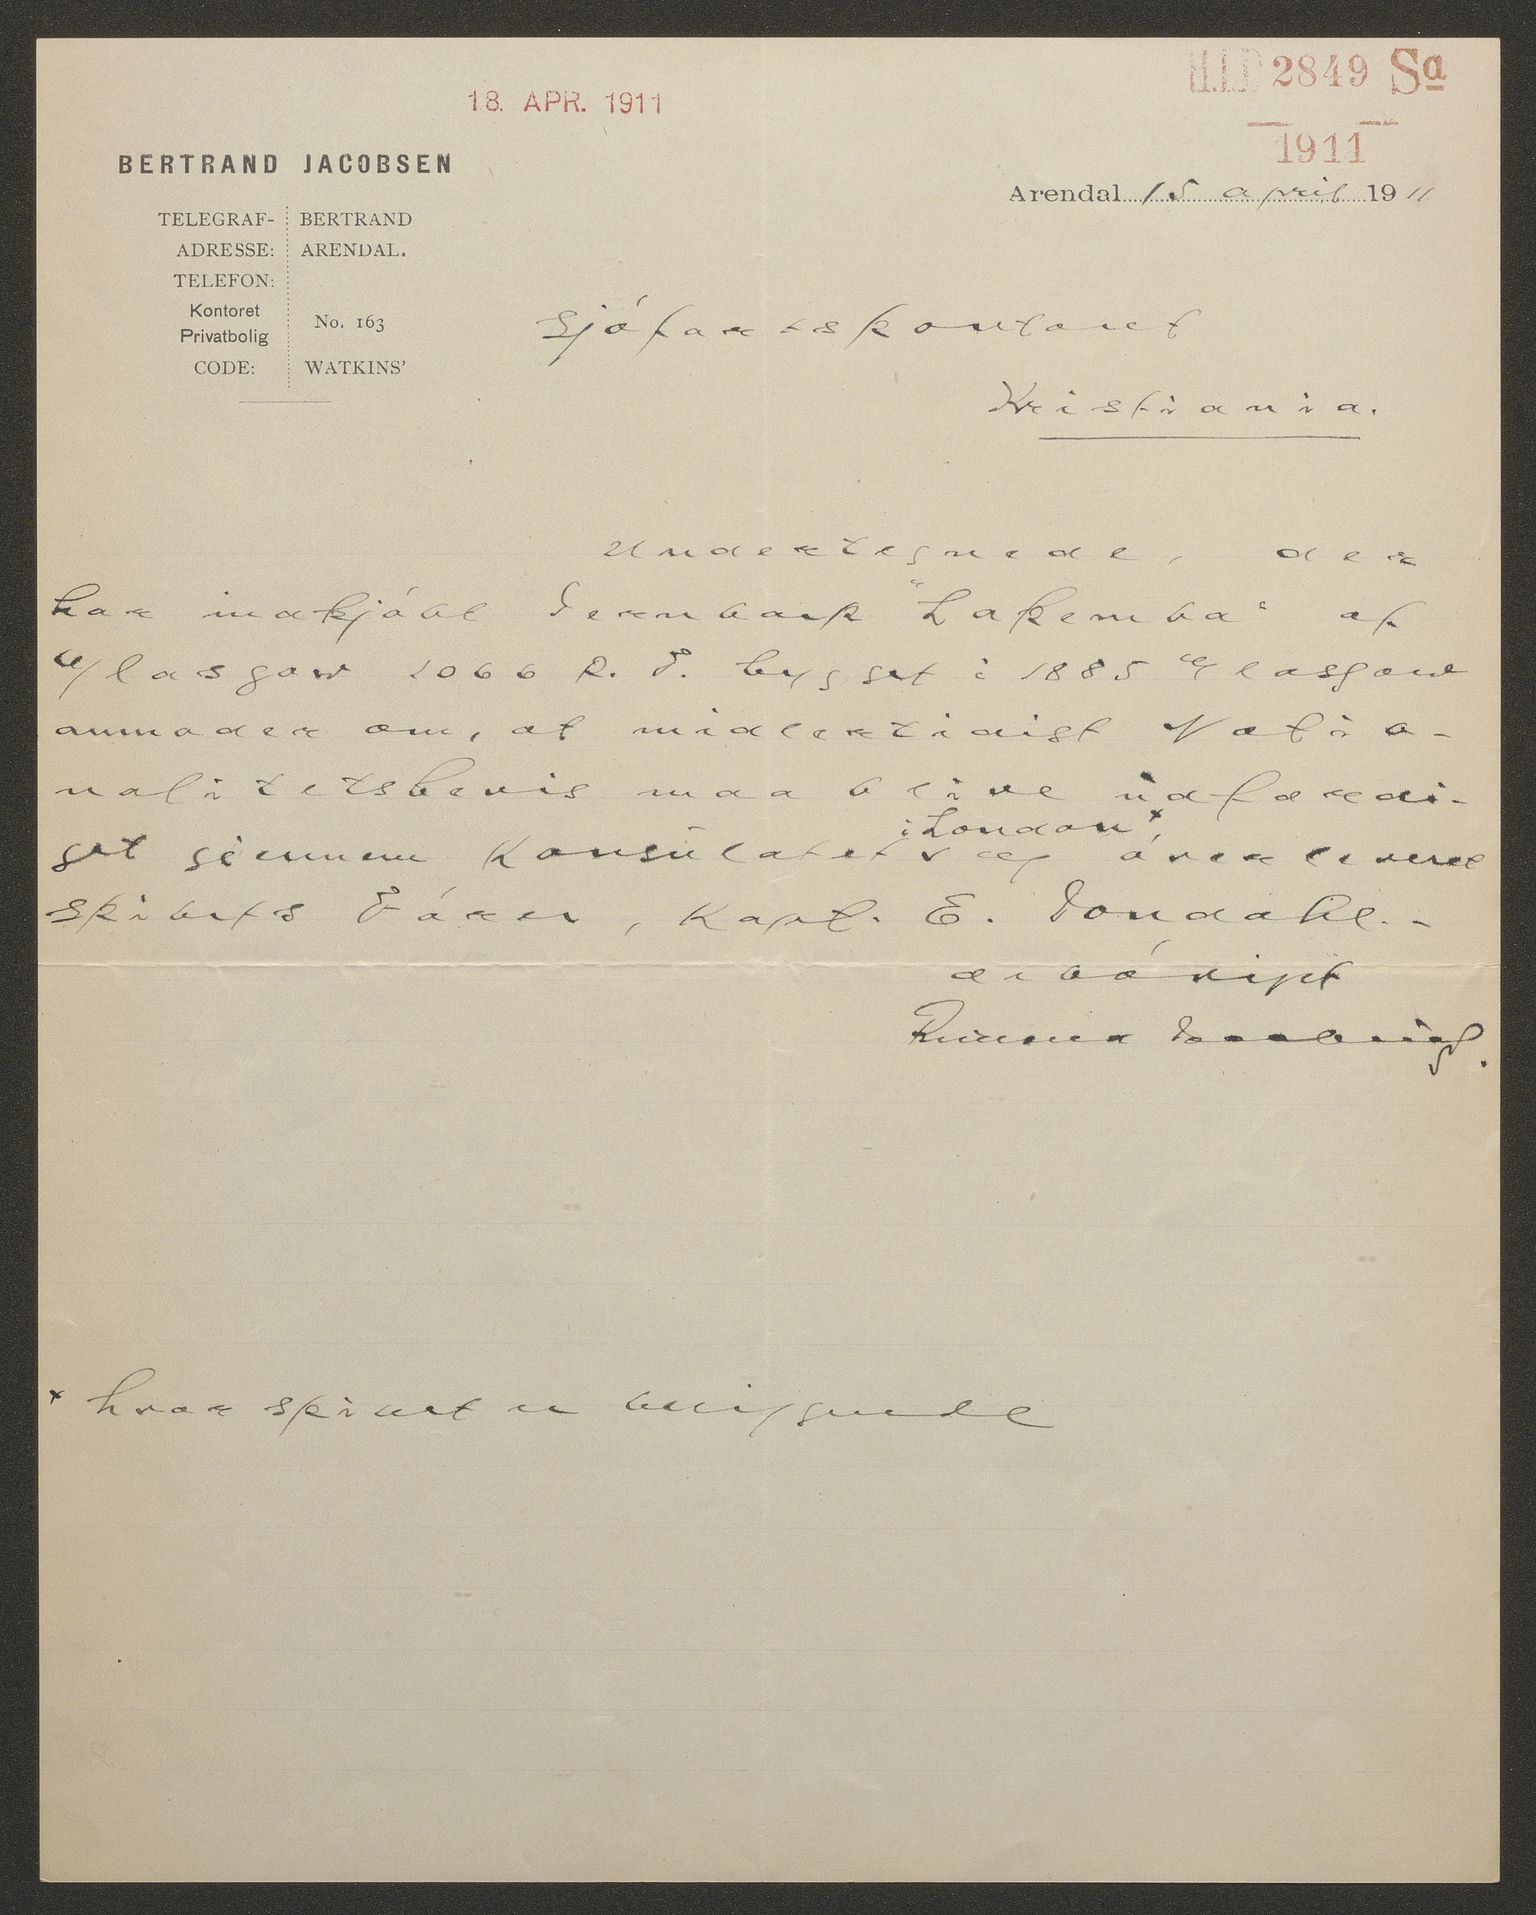 H.I.D 2849 Sa
1911
18. APR. 1911
BERTRAND JACOBSEN
TELEGRAF-ADRESSE: BERTRAND ARENDAL.
TELEFON:
Kontoret
Privatbolig
No. 163
CODE: WATKINS'
Arendal 15 april 1911
Sjöfartskontoret
Kristiania.
Undertegnede, der
har indkjöbt Jernbark "Lakemba" af
Glasgow 1066 R. T. bygget i 1885 Glasgow
anmoder om, at midlertidigt Natio-
nalitetsbevis maa blive udfærdi-
get gjennem Konsulatet i London x, og överleveret
skibets Förer, Kapt. E. Jondahl.-
ærbödigst
x hvor skibet er beliggende